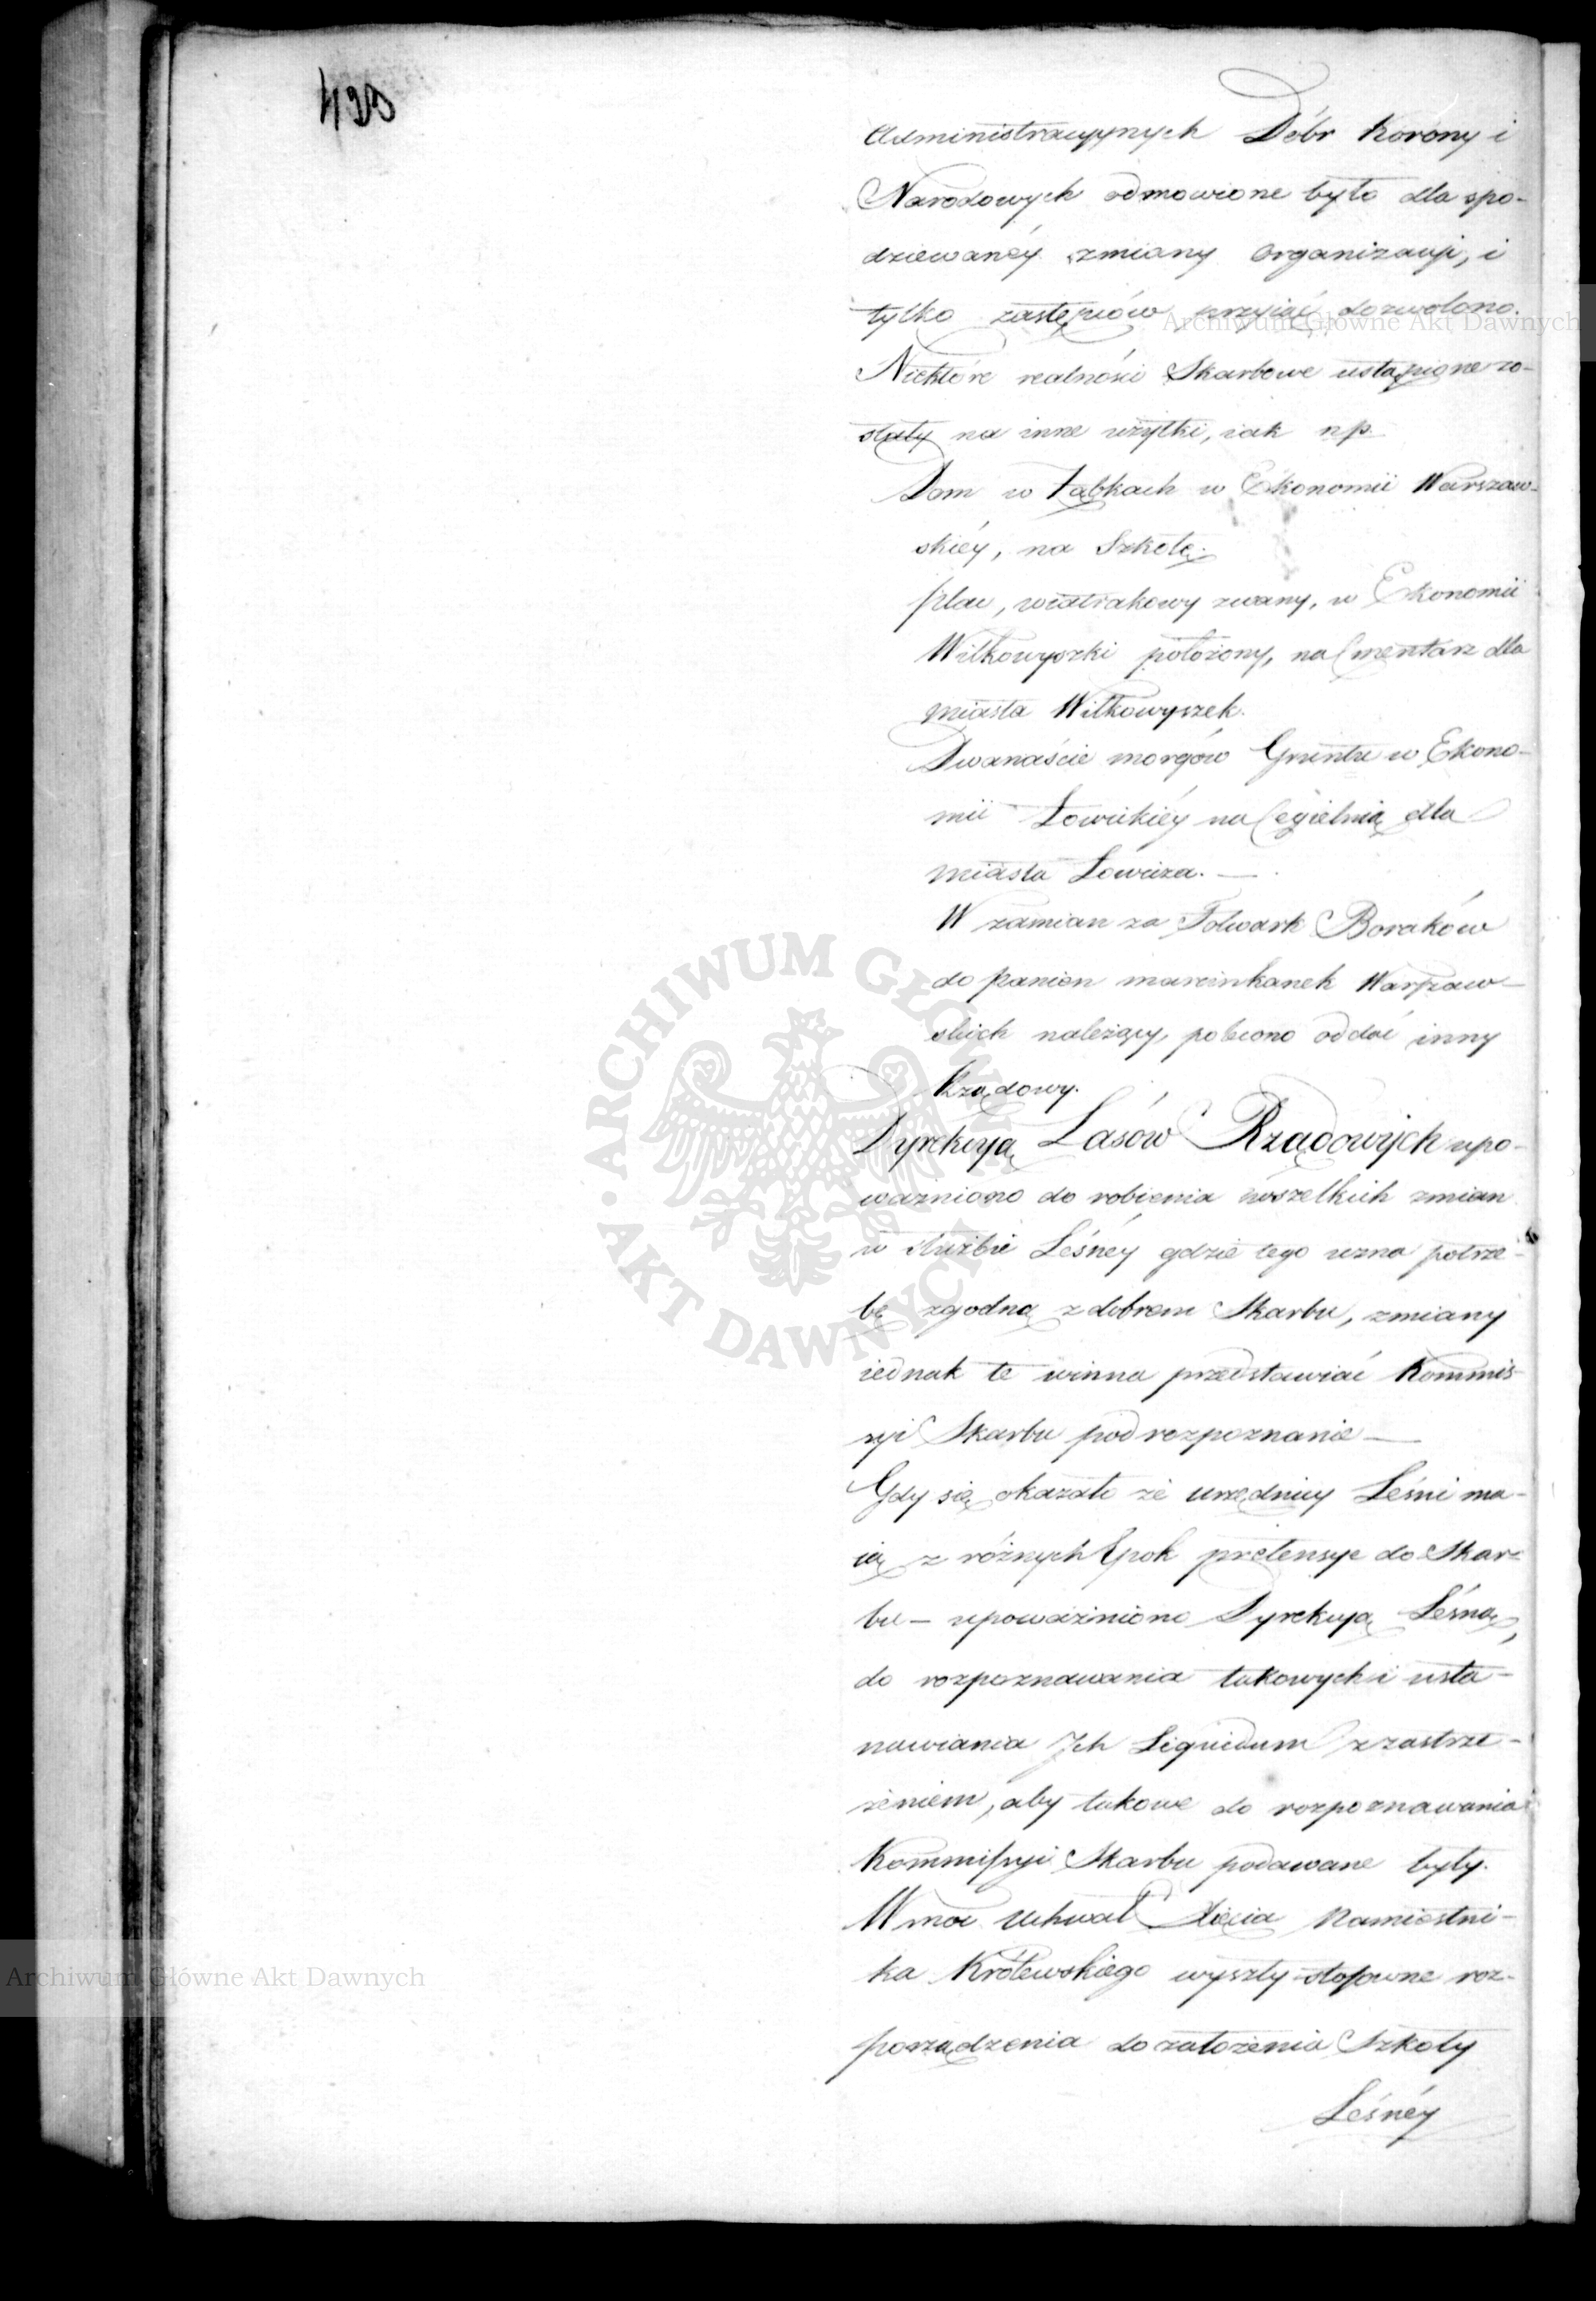 Administracyynych Dóbr Korony i
Narodowych odmowione było dla spo-
dziewanéy zmiany Organizacyi, i
tylko zastępców przyiąć dozwolono.
Niektóre realności Skarbowe ustąpione zo-
stały na inne użytki, iak np
Dom w Ząbkach w Ekonomii Warszaw-
skiéy, na Szkołę.
plac, wiatrakowy zwany, w Ekonomii
Wiłkowyszki położony, na Cmentarz dla
miasta Wiłkowyszek.
Dwanaście morgów Gruntu w Ekono-
mii Łowickiéy na Cegielnią dla
miasta Łowicza. —
W zamian za Folwark Boraków
do panien marcinkanek Warszaw-
skich należący, polecono oddać inny
Rządowy.
Dyrekcyą Lasów Rządowych upo-
ważniono do robienia wszelkich zmian
w służbie Leśnéy gdzie tego uzna potrze-
bę zgodną z dobrem Skarbu, zmiany
iednak te winna przedstawiać Kommis-
syi Skarbu pod rozpoznanie —
Gdy się okazało że urzędnicy Leśni ma-
ią z różnych Epok pretensye do Skar-
bu — upoważniono Dyrekcyą Leśną,
do rozpoznawania takowych i usta-
nawiania Ich Liquidum z zastrze-
żeniem, aby takowe do rozpoznawania
Kommissyi Skarbu podawane były.
W moc Uchwał Xięcia Namiestni-
ka Królewskiego wyszły stosowne roz-
porządzenia do założenia Szkoły
Leśnéy
Archiwum Główne Akt Dawnych
Archiwum Główne Akt Dawnych
ARCHIWUM GŁÓWNE AKT DAWNYCH